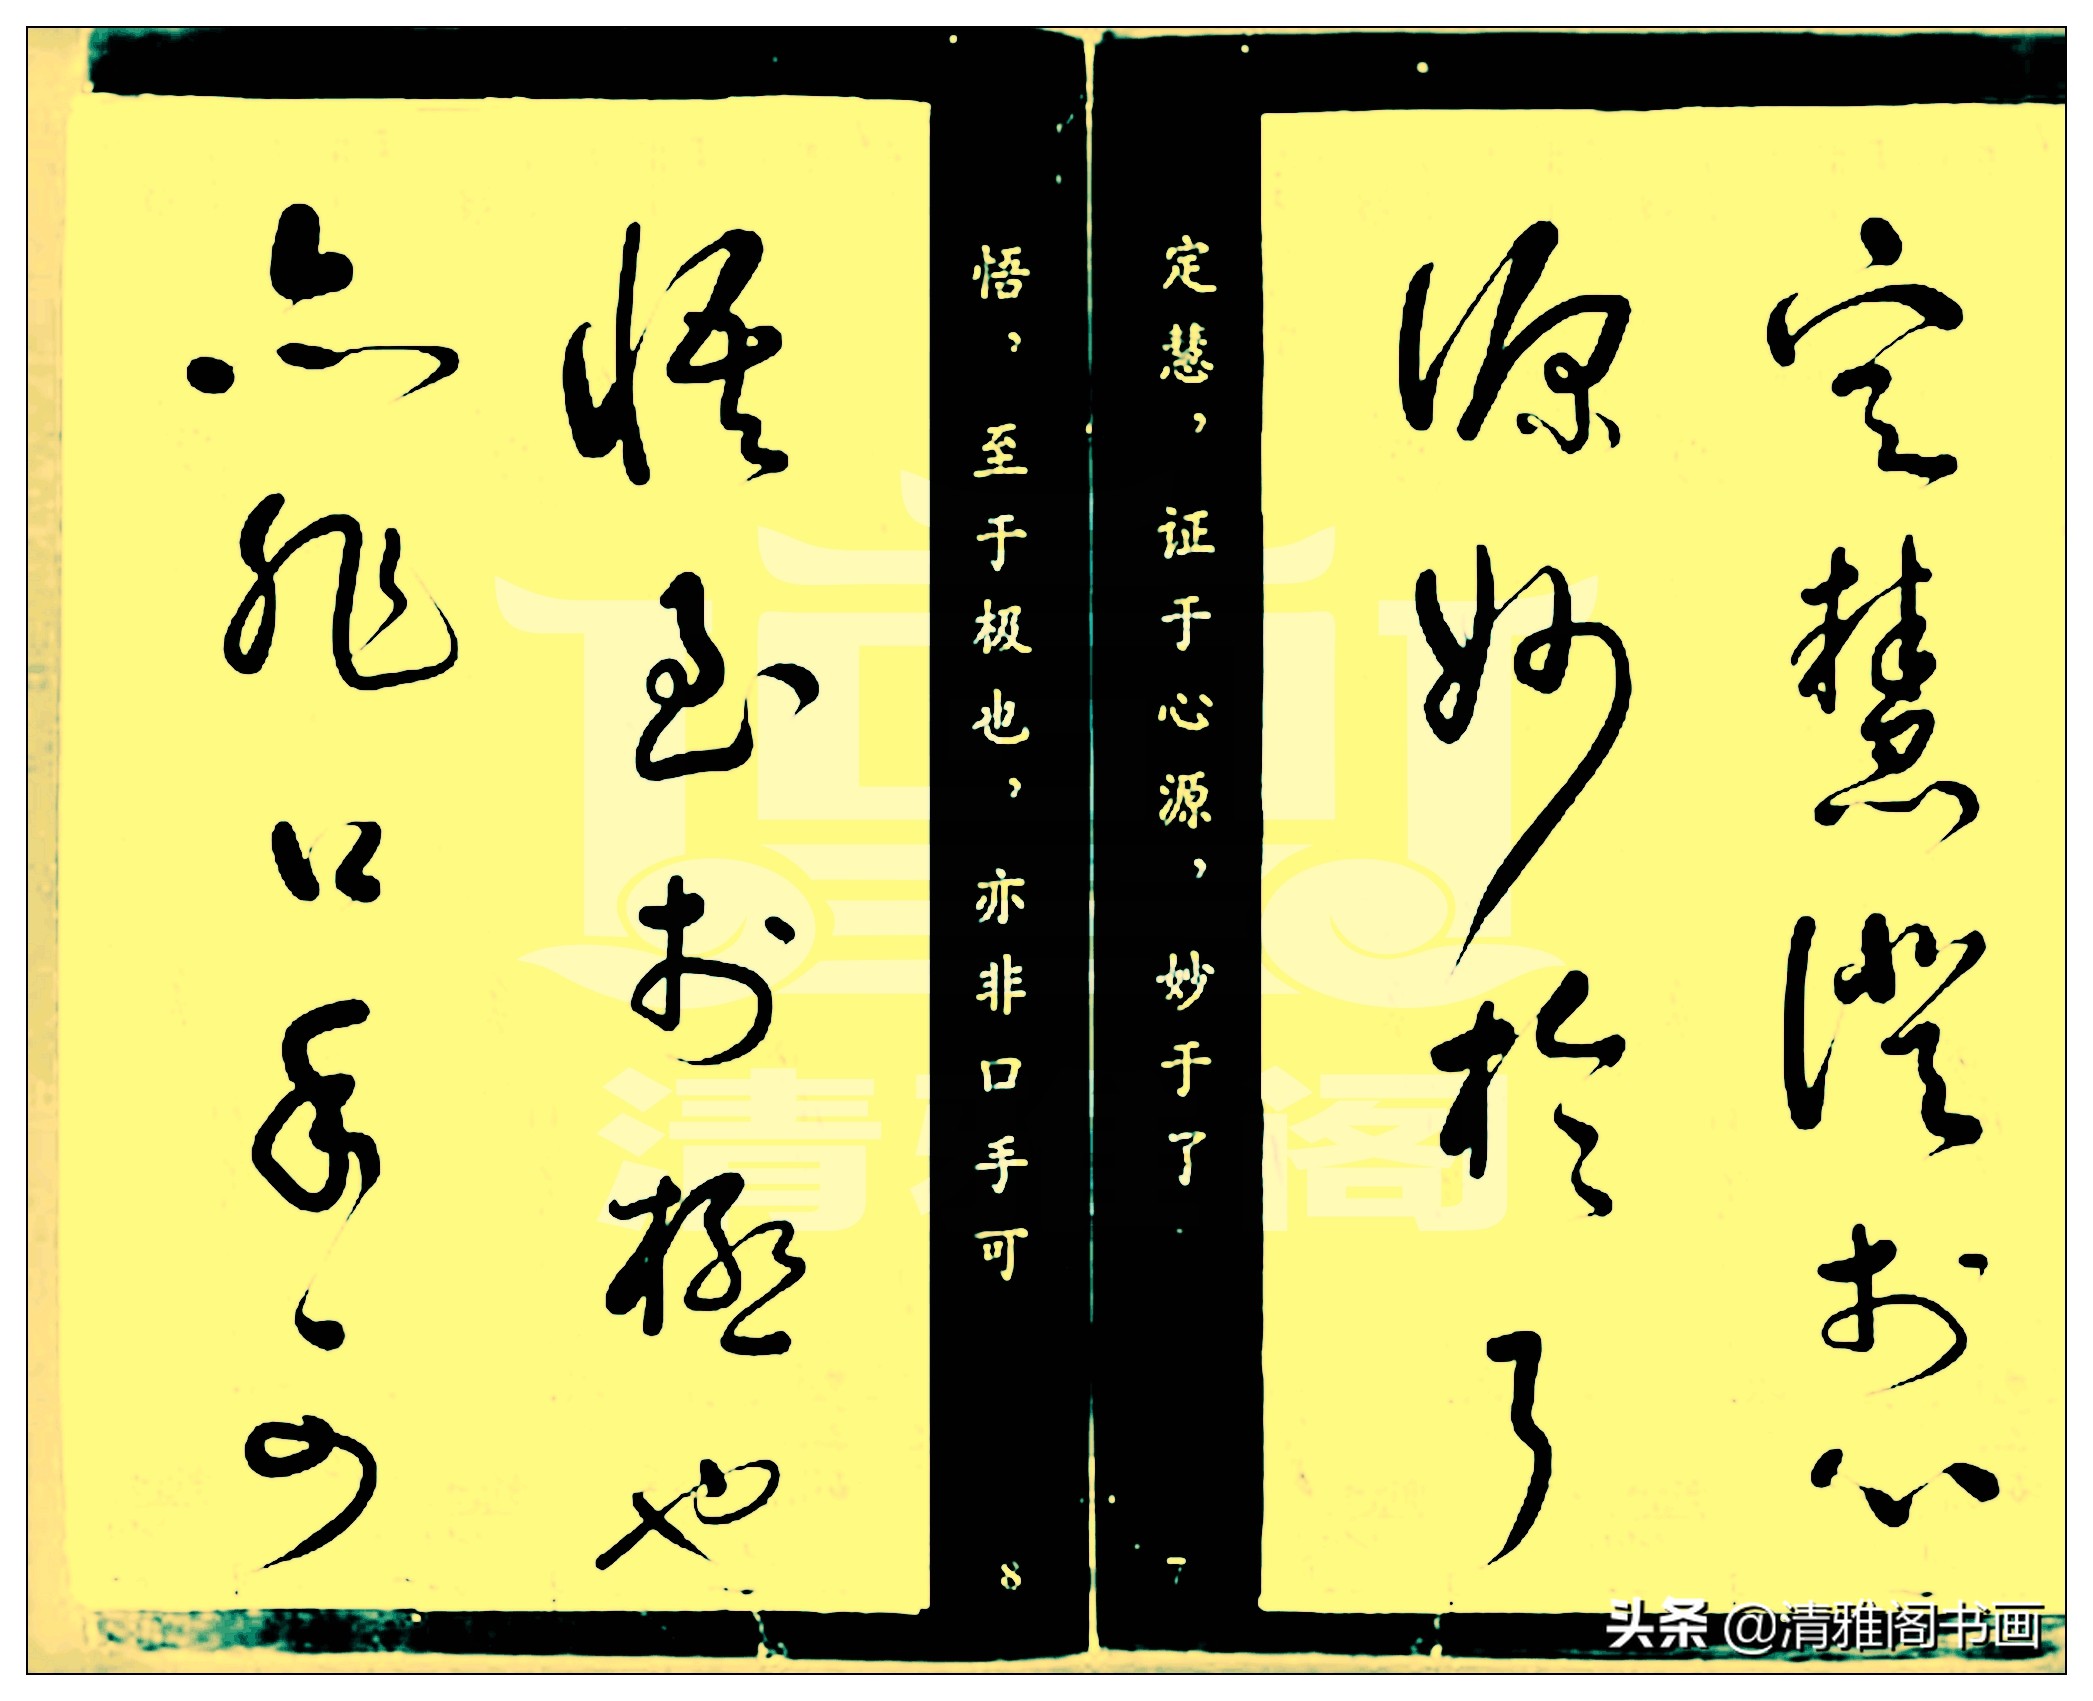 定慧證於心
源妙於了
定慧，证于心源，妙于了
7
悟，至于极也，亦非口手可
8
悟至於極也
亦非口手可
清雅阁
头条 @清雅阁书画